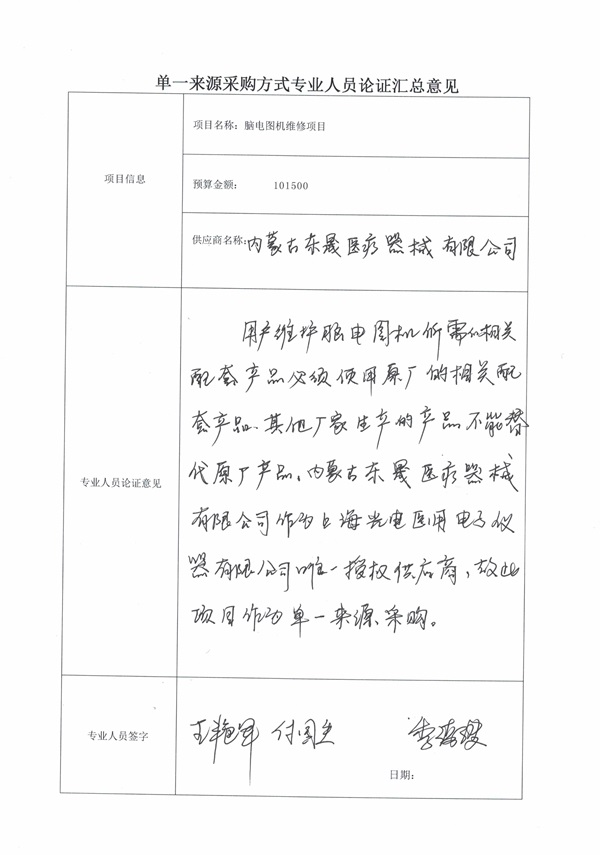 单一来源采购方式专业人员论证汇总意见
项目信息
项目名称：脑电图机维修项目
预算金额： 101500
供应商名称：内蒙古东晟医疗器械有限公司
专业人员论证意见
用户维护脑电图机所需的相关
配套产品必须使用原厂的相关配
套产品、其他厂家生产的产品不能替
代原厂产品，内蒙古东晟医疗器械
有限公司作为上海光电医用电子仪
器有限公司唯一授权供应商，故此
项目作为单一来源采购。
专业人员签字
日期：